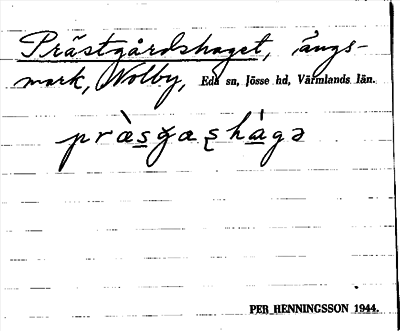 Prästgårdshaget, ängs-
mark, Nolby, Eda sn, Jösse hd, Värmlands län.
pràs̲ǧaʂhá̲gə
PER HENNINGSSON 1944.